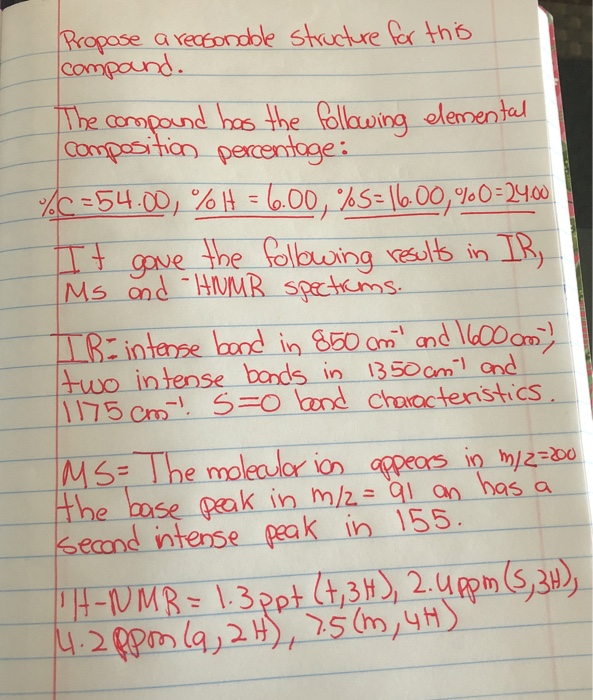 Propose a reasonable structure for this
compound.
The compound has the following elemental
composition percentage:
%C = 54.00, %H = 6.00, %S= 16.00, %O= 24.00
It gave the following results in IR,
MS and -HNMR spectrums.
IR= intense band in 850 cm⁻¹ and 1600 cm⁻¹,
two intense bands in 1350 cm⁻¹ and
1175 cm⁻¹. S=O bond characteristics.
MS= The molecular ion appears in m/z=200
the base peak in m/z = 91 an has a
second intense peak in 155.
¹H-NMR= 1.3ppt (t,3H), 2.4ppm (s,3H),
4.2ppm (q,2H), 7.5 (m,4H)